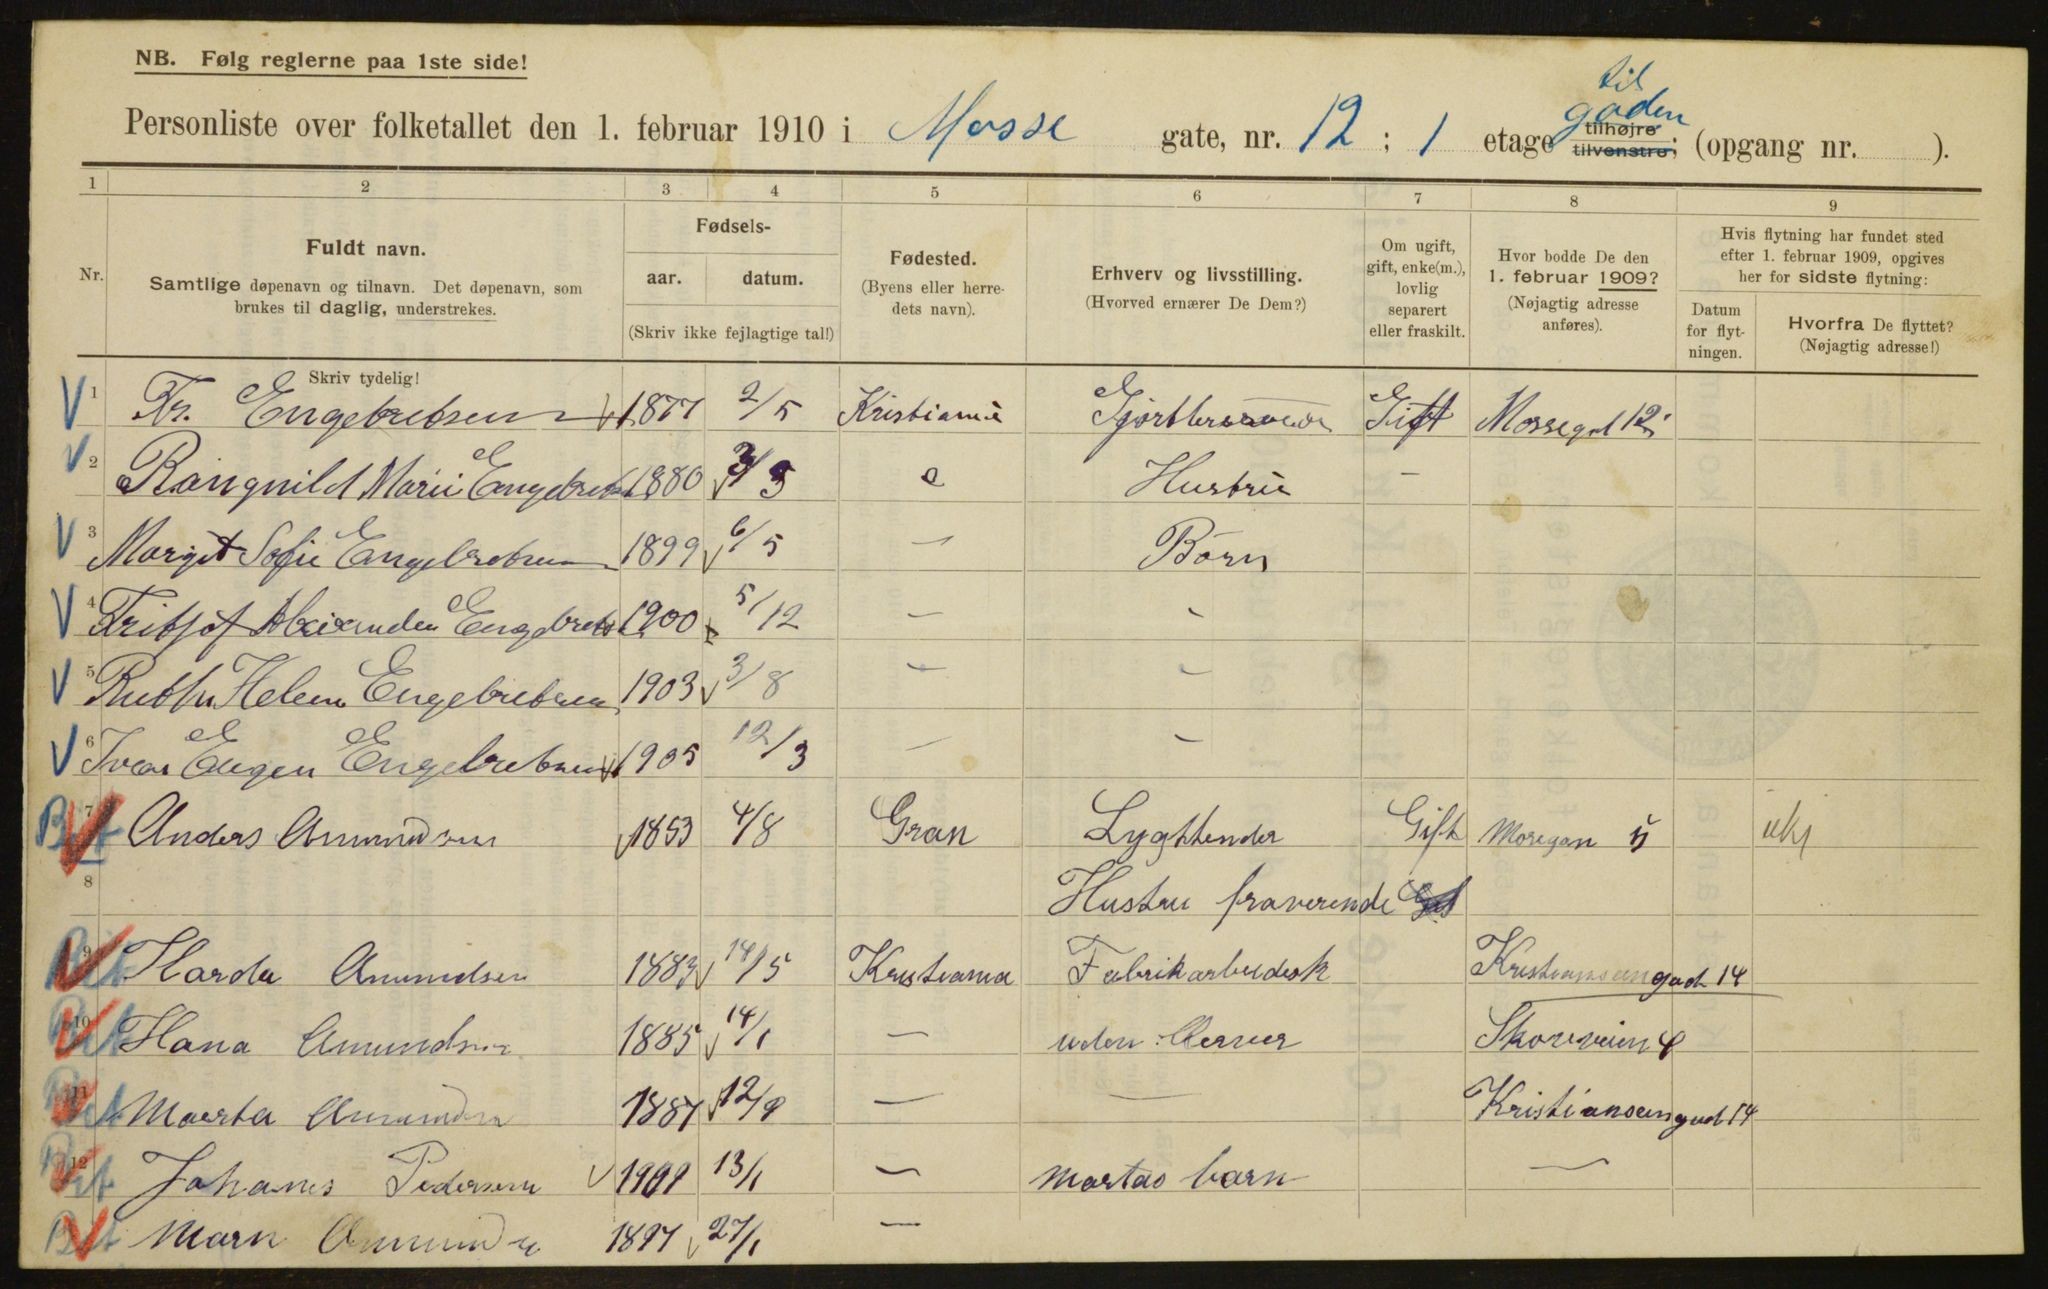 NB. Følg reglerne paa 1ste side!
til
gaden
Personliste over folketallet den 1. februar 1910 i Mosse gate, nr. 12 ; 1 etage tilhøjre tilvenstre; (opgang nr. ).
1 2 3 4 5 6 7 8 9
Nr.
Fuldt navn.
Samtlige døpenavn og tilnavn. Det døpenavn, som
brukes til daglig, understrekes.
Skriv tydelig!
Fødsels-
aar. datum.
(Skriv ikke fejlagtige tal!)
Fødested.
(Byens eller herre-
dets navn).
Erhverv og livsstilling.
(Hvorved ernærer De Dem?)
Om ugift,
gift, enke(m.),
lovlig
separert
eller fraskilt.
Hvor bodde De den
1. februar 1909?
(Nøjagtig adresse
anføres).
Hvis flytning har fundet sted
efter 1. februar 1909, opgives
her for sidste flytning:
Datum
for flyt-
ningen.
Hvorfra De flyttet?
(Nøjagtig adresse!)
V 1 Fr. Engebretsen 1877 2/5 Kristiania Gift Mossegad 12
V 2 Rangnild Marie Engebrets 1880 Hustru -
V 3 Margit Sofie Engebretsen 1899 6/5 - Børn
V 4 Fritjof Alexander Engebrets 1900 5/12 - -
V 5 Ruth Helene Engebretsen 1903 3/8 - -
V 6 Ivar Eugen Engebretsen 1905 12/3 - -
Bet 7 Anders Amundsen 1853 4/8 Gran Lygttender Gift
8 Hustru fraverende
Bet 9 Harda Amundsen 1883 14/5 Kristiania Fabrikarbeidesk Kristiansangade 14
Bet 10 Hana Amundsen 1885 14/1 - uden Skovveien
Bet 11 Maarta Amundsen 1887 - - Kristiansangad 14
Bet 12 Johanes Pedersen 1909 13/1 - Martas barn -
Bet Marn Amundsen 1897 27/1 -